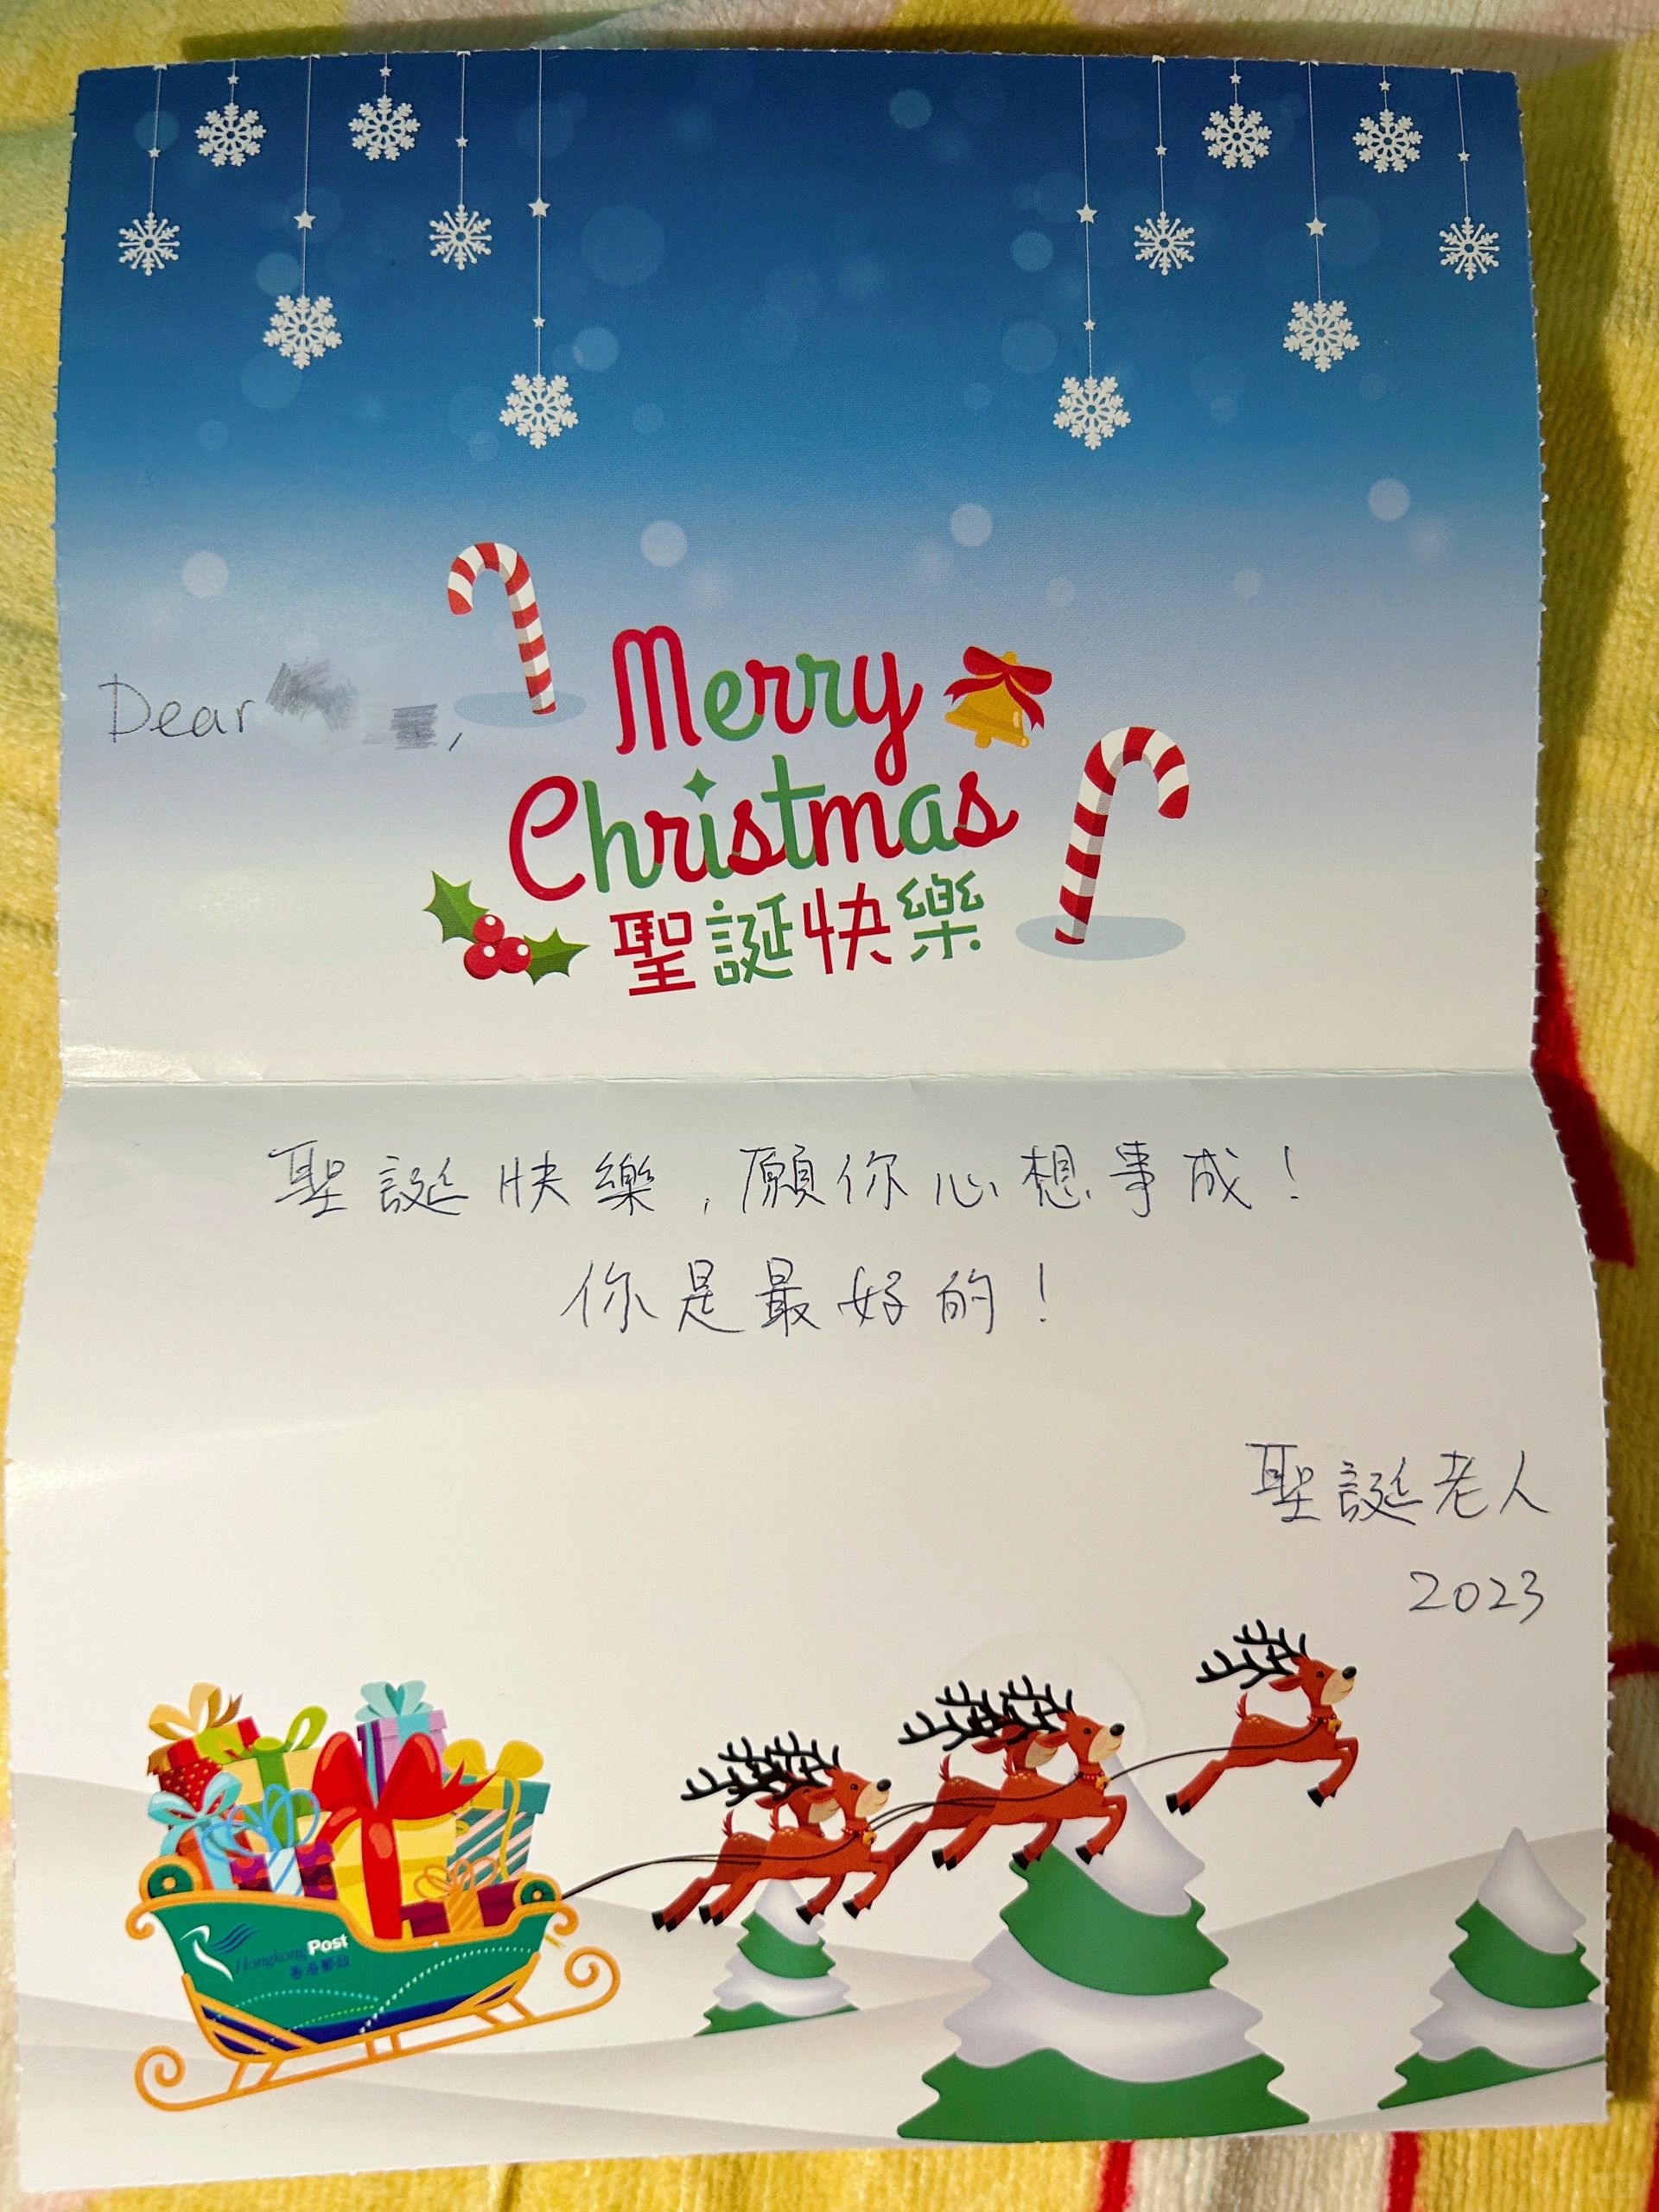 Dear
Merry
Christmas
聖誕快樂
聖誕快樂，願你心想事成！
你是最好的！
聖誕老人
2023
Hongkong Post
香港郵政